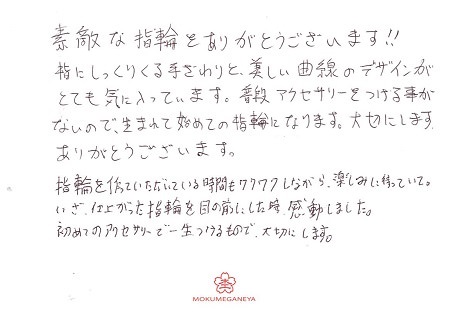 素敵な指輪をありがとうございます!!
指にしっくりくる手ざわりと、美しい曲線のデザインが
とても気に入っています。普段アクセサリーをつける事が
ないので、生まれて始めての指輪になります。大切にします。
ありがとうございます。
指輪を作っていただいている時間もワクワクしながら、楽しみに待っていて。
いざ、仕上がった指輪を目の前にした時、感動しました。
初めてのアクセサリーで一生つけるもので、大切にします。
MOKUMEGANEYA